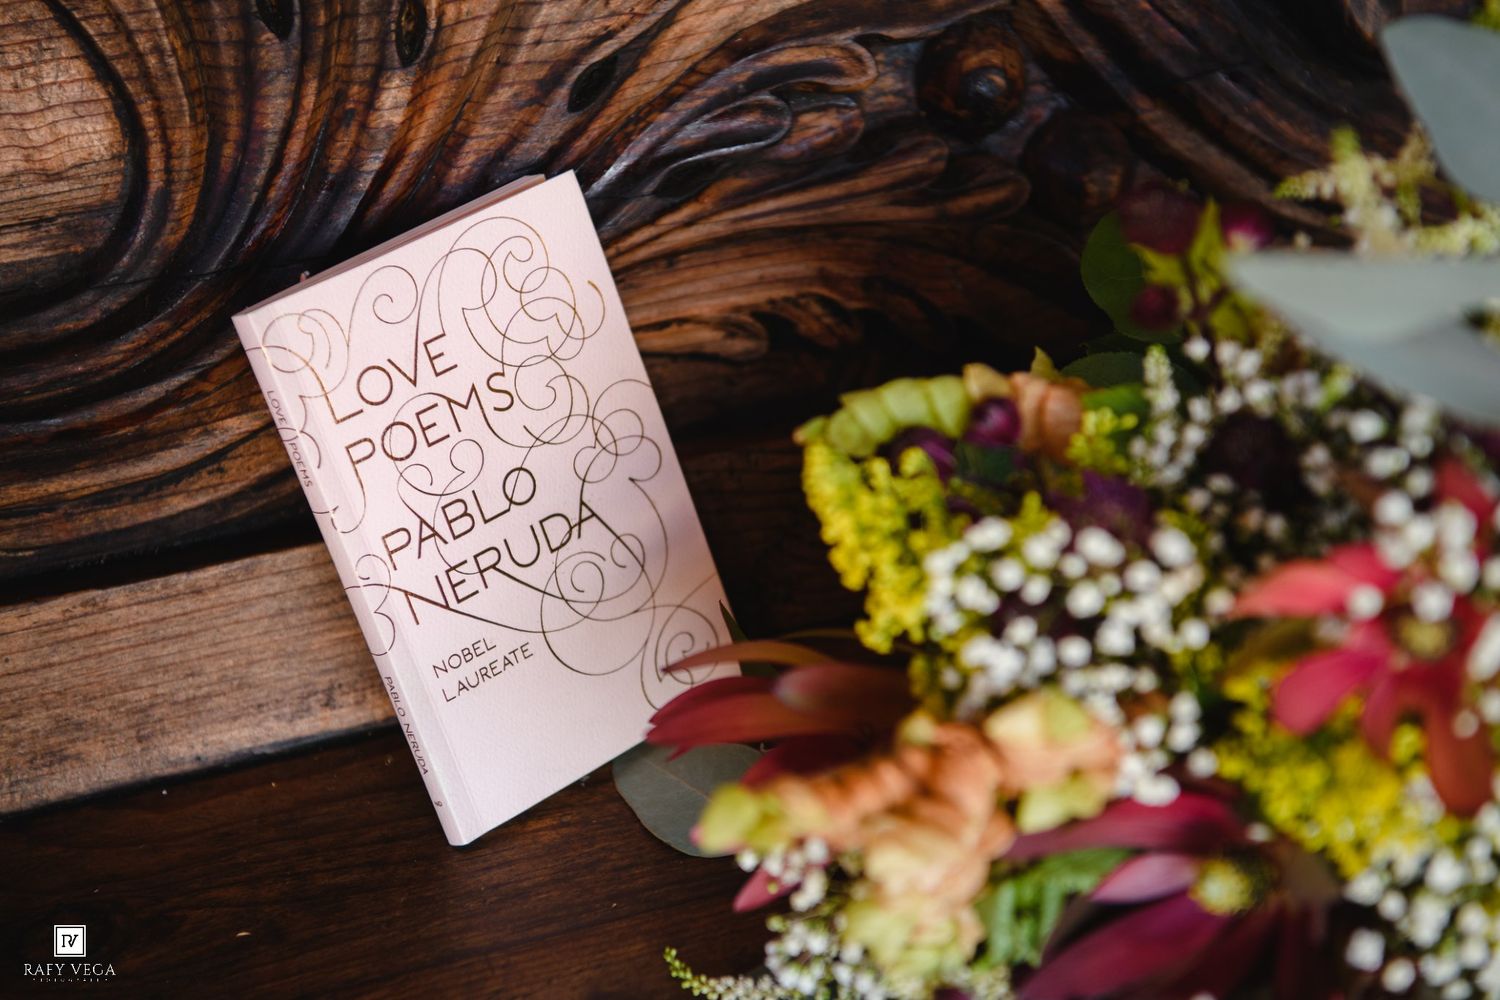 LOVE
POEMS
PABLO
NERUDA
NOBEL
LAUREATE
LOVE POEMS
PABLO NERUDA
RV
RAFY VEGA